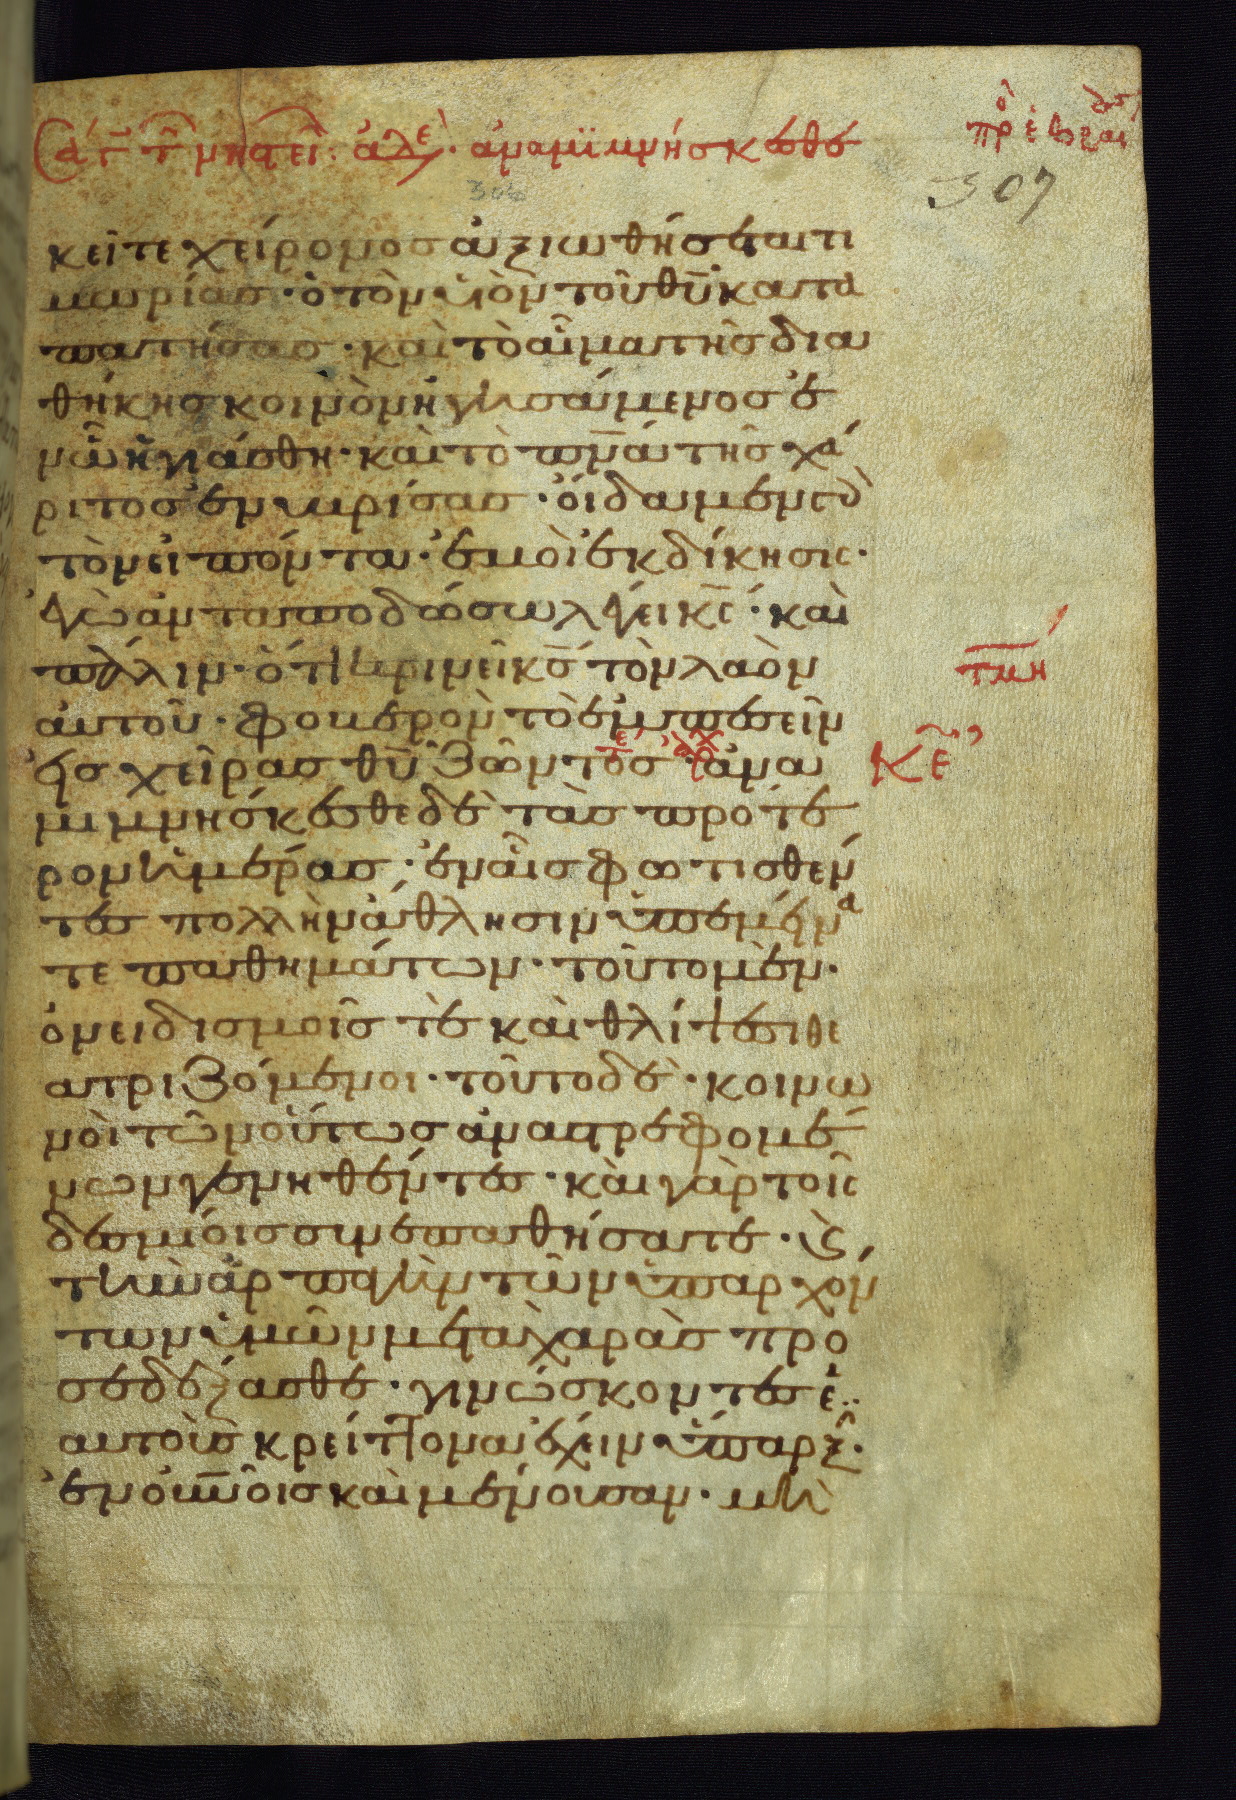 ἀναμϊμνήσκεσθε
307
306
κεῖτε χείρονος ἀξιωθήσεται τι
μωρίας · ὁ τὸν υἱὸν τοῦ θῡ κατα
πατήσας · καὶ τὸ αἷμα τῆς δια
θήκης κοινὸν ἡγησάμενος ἐ
ν ὧ ἡγιάσθη · καὶ τὸ πν̅α τῆς χά
ριτος ἐνυβρίσας · οἴδαμεν γὰρ
τὸν εἰπόντα · ἐμοὶ ἐκδίκησις ·
ἐγὼ ἀνταποδώσω λέγει κ̅ς · καὶ
πάλιν · ὅτι κρινεῖ κ̅ς τὸν λαὸν
αὐτοῦ · φοβερὸν τὸ ἐμπεσεῖν
εἰς χεῖρας θῡ ζῶντος · ἀνα
μιμνήσκεσθε δὲ τὰς πρότε
ρον ἡμέρας · ἐν αἷς φωτισθέν
τες πολλὴν ἄθλησιν ὑπεμείνα
τε παθημάτων · τοῦτο μὲν ·
ὀνειδισμοῖς τὲ καὶ θλίψεσι θε
ατριζόμενοι · τοῦτο δὲ · κοινω
νοὶ τῶν οὕτως ἀναστρεφομέ
νων γενηθέντες · καὶ γὰρ τοῖς
δεσμόις συνεπαθήσατε · ϗ
τὴν ἁρπαγὴν τῶν ὑπαρχόν
των ὑμῶν μετὰ χαρᾶς προ
σεδέξασθε · γινώσκοντες ἑ
αυτοῖς κρείττονα ἔχειν ὕπαρξ ·
ἐν οὐν̅οις καὶ μένουσαν · μὴ